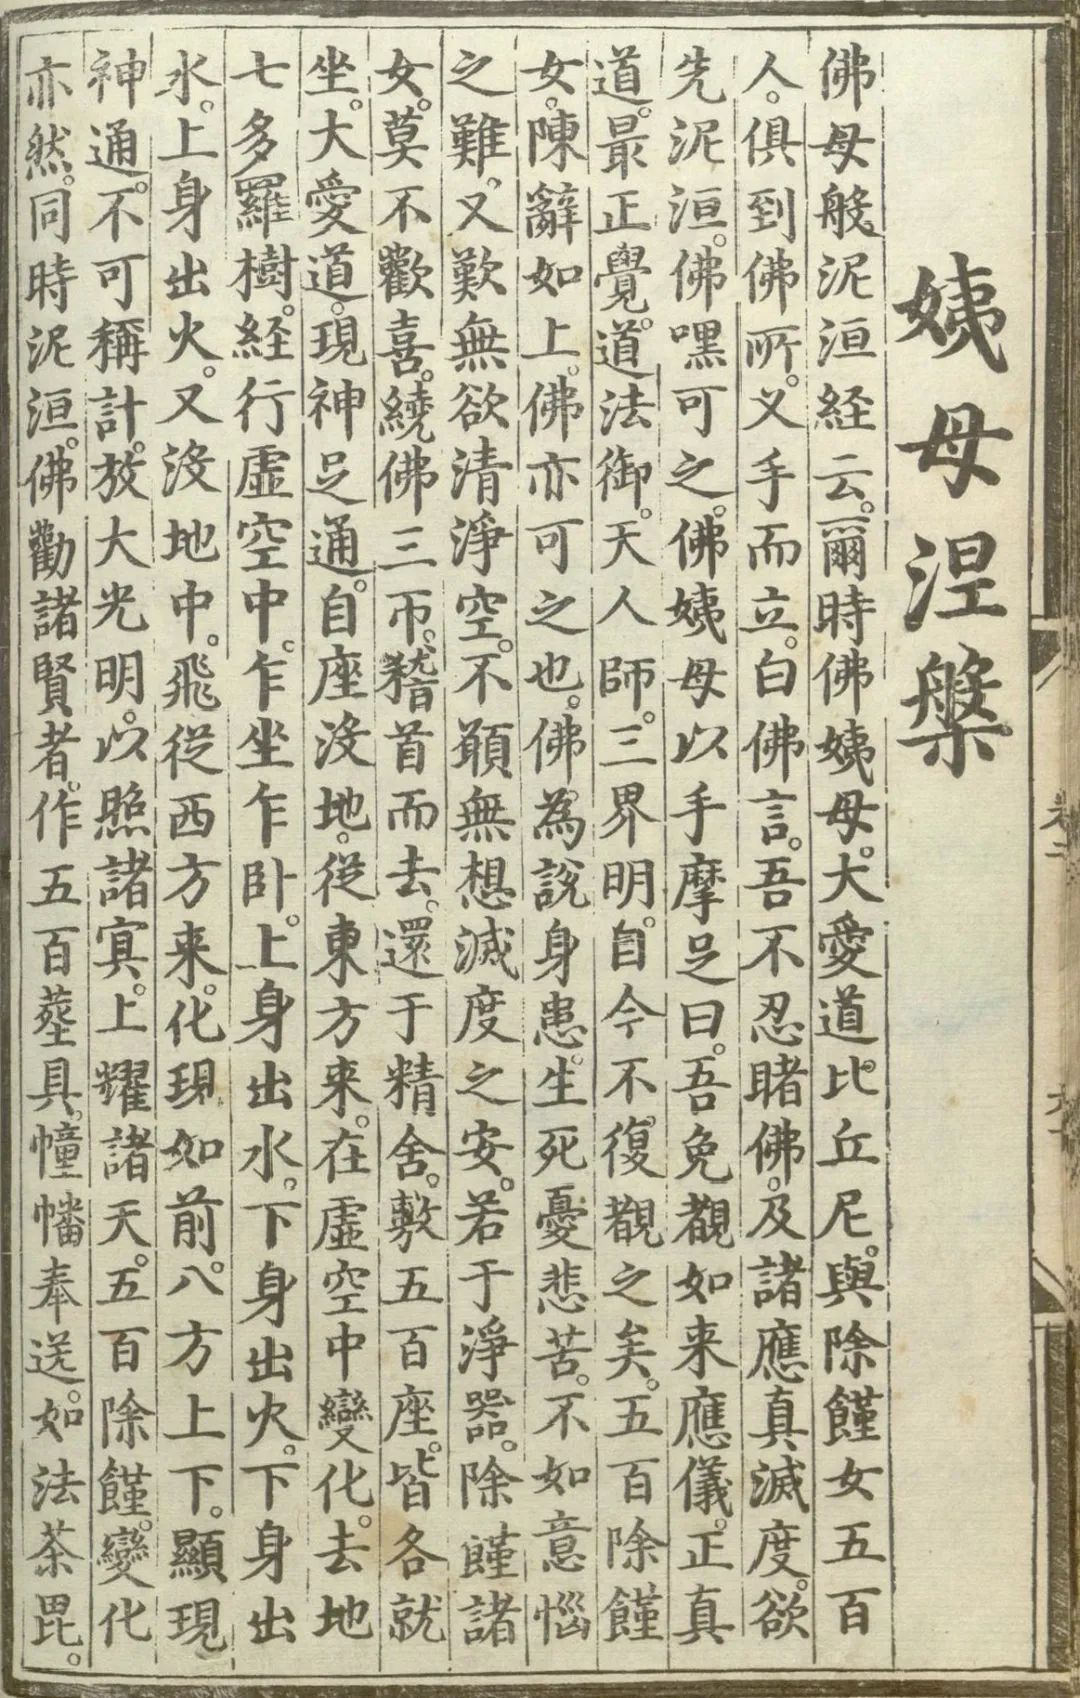 姨母涅槃
佛母般泥洹経云。爾時佛姨母。大愛道比丘尼。與除饉女五百
人。俱到佛所。义手而立。白佛言。吾不忍睹佛。及諸應真滅度。欲
先泥洹。佛嘿可之。佛姨母以手摩足曰。吾免覩如来應儀。正真
道。最正覺。道法御。天人師。三界明。自今不復覩之矣。五百除饉
女。陳辭如上。佛亦可之也。佛為説身患。生死憂悲苦。不如意惱
之難。又歎無欲清淨空。不願無想滅度之安。若于淨器。除饉諸
女。莫不歡喜。繞佛三帀。稽首而去。還于精舍。敷五百座。皆各就
坐。大愛道。現神足通。自座没地。従東方来。在虚空中變化。去地
七多羅樹。経行虚空中。乍坐乍卧。上身出水。下身出火。下身出
水。上身出火。又没地中。飛従西方来。化現如前。八方上下。顯現
神通。不可稱計。放大光明。以照諸冥。上耀諸天。五百除饉。變化
亦然。同時泥洹。佛勸諸賢者。作五百葬具。幢幡奉送。如法荼毘。
卷二